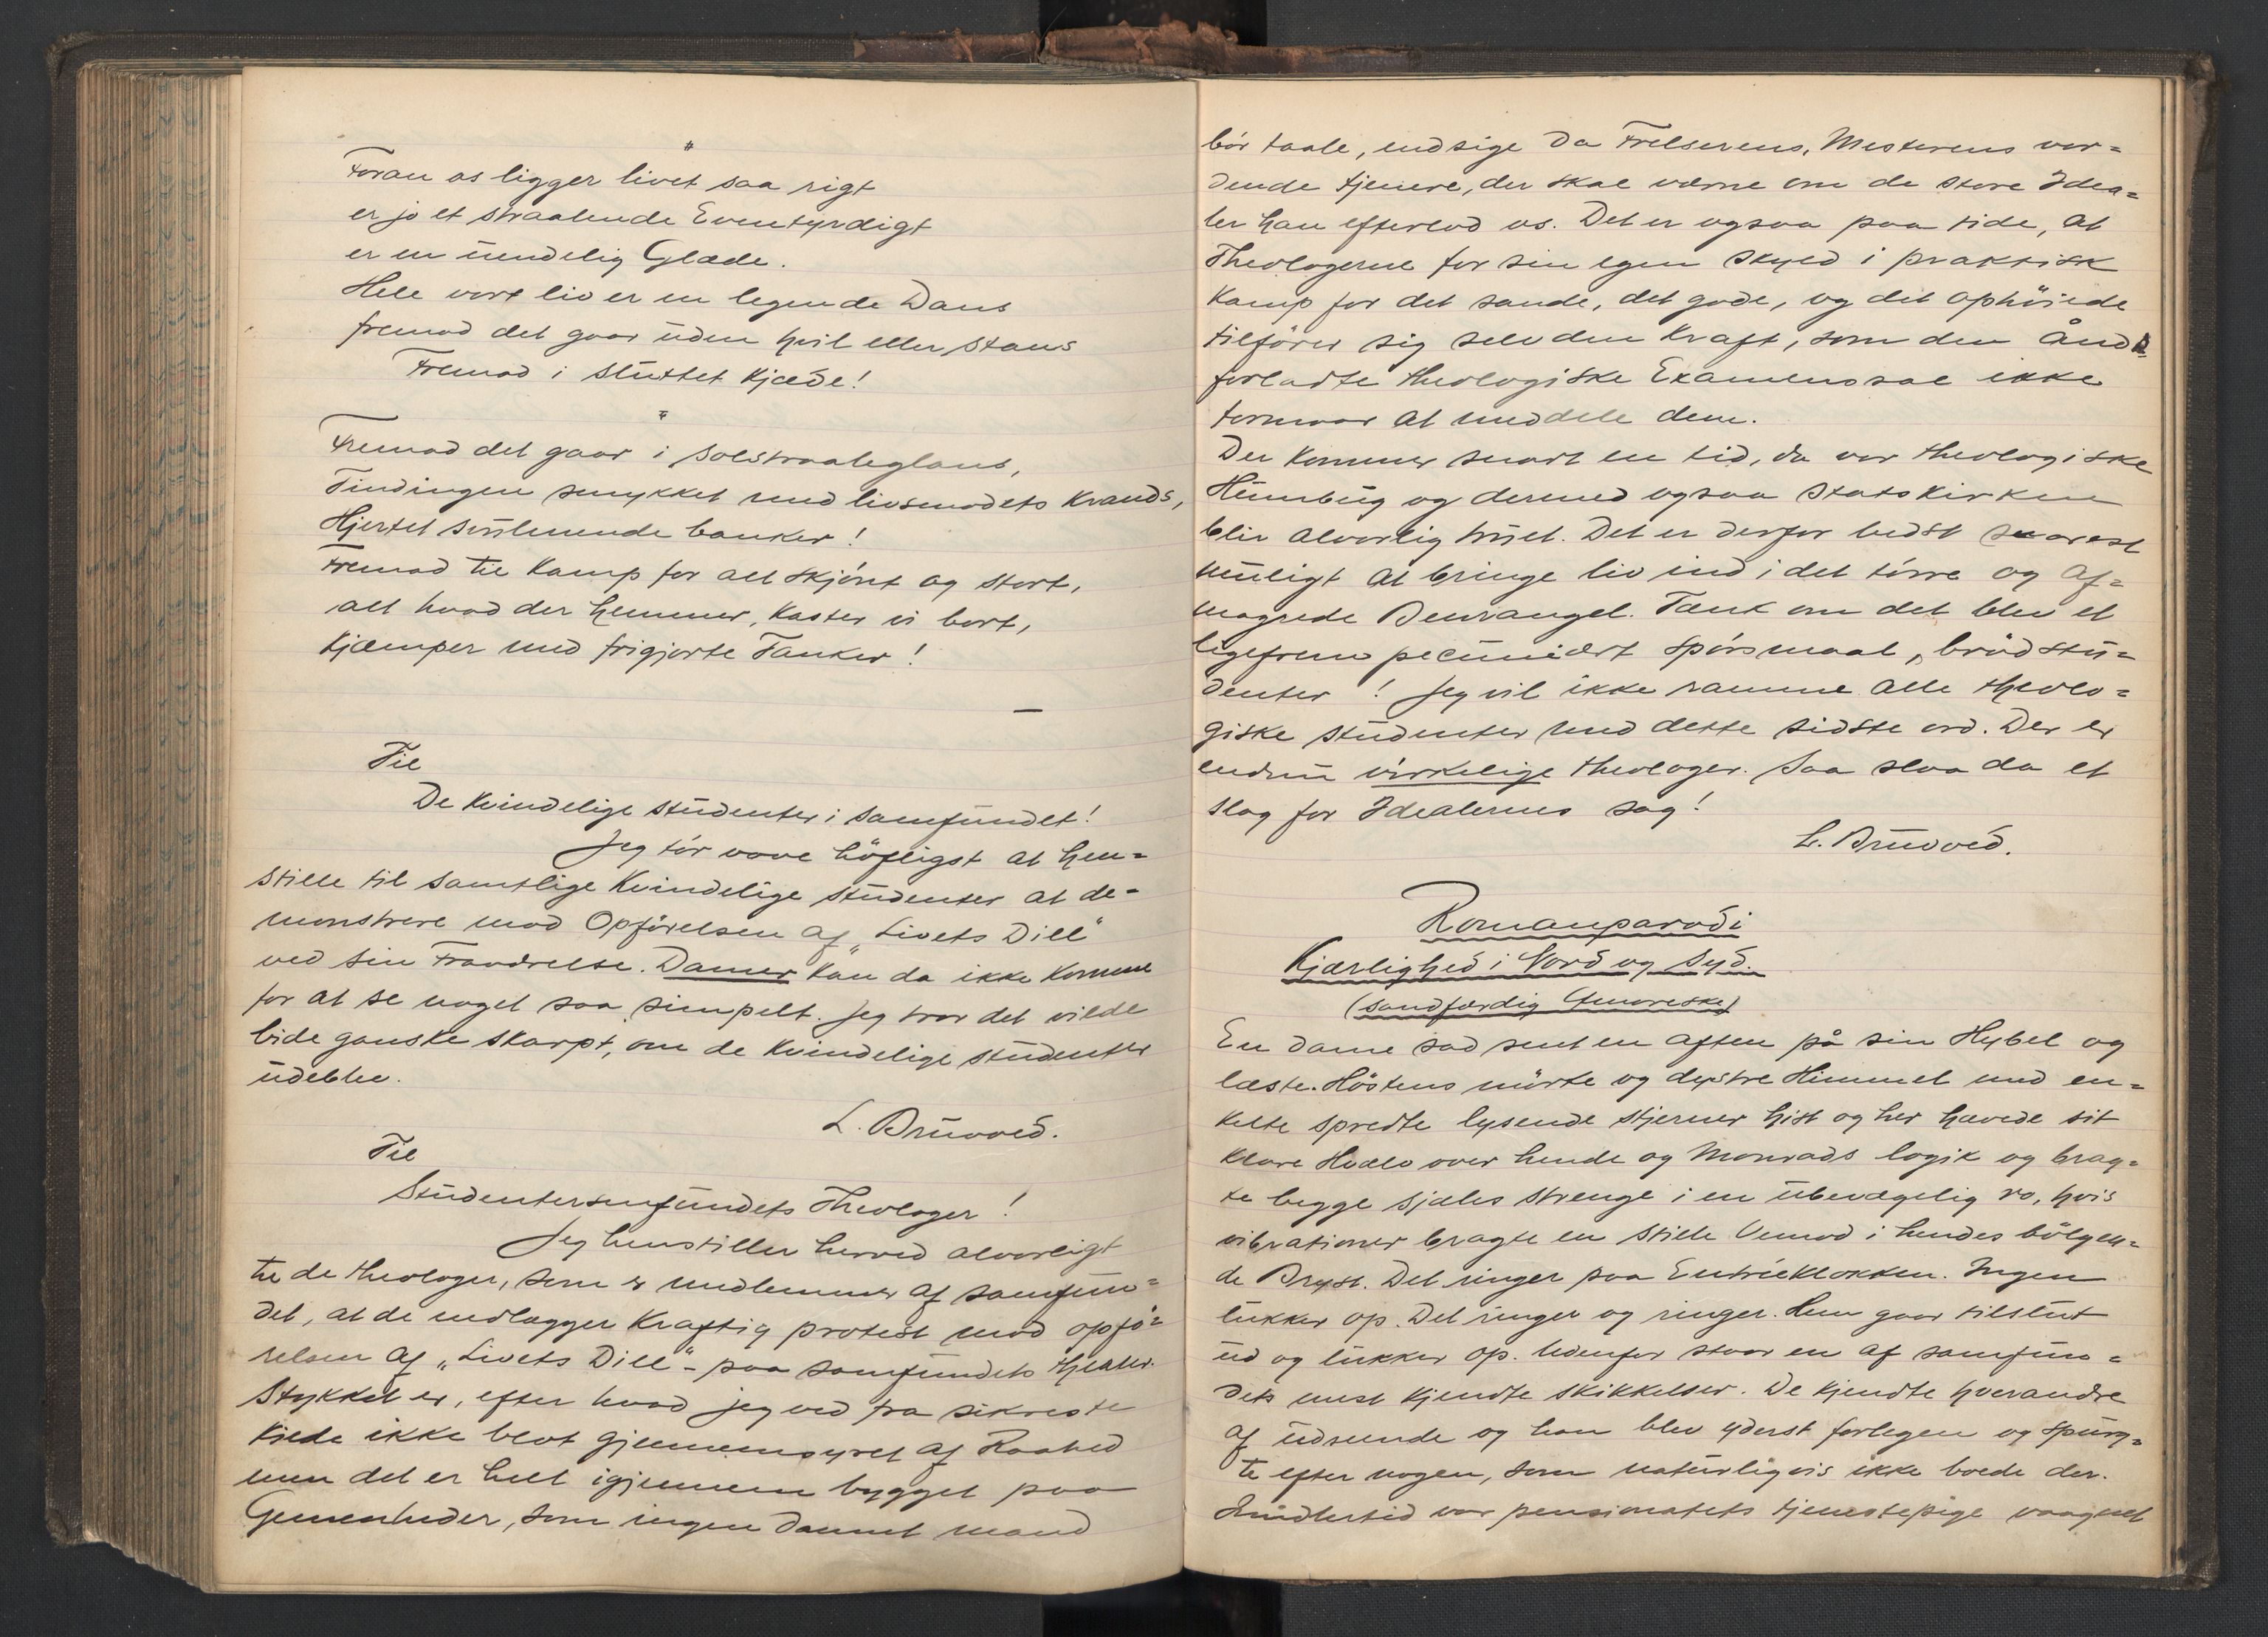 Foran os ligger livet saa rigt
er jo et straalende Eventyrdigt
er en uendelig Glæde.
Hele vort liv er en legende Dans
fremad det gaar uden hvil eller stans
Fremad i sluttet kjæde!
Fremad det gaar i solstraaleglans,
Tindingen smykket med livsmodets krands,
Hjertet svulmende banker!
Fremad til Kamp for alt skjönt og stort,
alt hvad der hemmer, kaster vi bort,
kjæmper med frigjorte Tanker!
—
Til
De kvindelige studenter i samfundet!
Jeg tör vove höfligst at hen=
stille til samtlige kvindelige studenter at de-
monstrere mod Opförelsen af „Livets Dill"
ved sin Fraværelse. Damer kan da ikke komme
for at se noget saa simpelt. Jeg tror det vilde
bide ganske skarpt, om de kvindelige studenter
udeblev.
L. Bruvoed.
Til
Studentersamfundets Theologer!
Jeg henstiller herved alvorligt
til de theologer, som er medlemmer af samfun=
det, at de nedlægger kraftig protest mod opfö=
relsen af „Livets Dill" - paa samfundets theater.
Stykket er, efter hvad jeg ved fra sikreste
kilde ikke blot gjennemsyret af Raahed
men det er helt igjennem bygget paa
Gemenheder, som ingen dannet mand
bör taale, endsige da Frelserens, Mesterens vor=
dende tjenere, der skal værne om de store Idea=
ler han efterlod os. Det er ogsaa paa tide, at
Theologerne for sin egen skyld i praktisk
kamp for det sande, det gode, og det ophöiede
tilförer sig selv den kraft, som den Ånds
forladte theologiske Examenssal ikke
formaar at meddele dem.
Der kommer snart en tid, da vor theologiske
Humbug og dermed ogsaa statskirken
blir alvorlig truet. Det er derfor bedst snarest
muligt at bringe liv ind i det törre og af=
magrede Benrangel. Tænk om det blev et
ligefrem pecuniært spörsmaal, brödstu=
denter! Jeg vil ikke ramme alle theolo=
giske studenter med dette sidste ord. Der er
endnu virkelige theologer. Saa slaa da et
slag for Idealernes sag!
L. Bruvoed.
Romanparodi
Kjærlighed i Nord og Syd.
(sandfærdig Humoreske)
En dame sad sent en aften på sin Hybel og
læste. Höstens mörke og dystre Himmel med en=
kelte spredte lysende stjerner hist og her hævede sit
klare Hvælv over hende og Monrads logik og brag=
te begge sjæles strenge i en ubevægelig ro, hvis
vibrationer bragte en stille Vemod i hendes bölgen=
de Bryst. Det ringer paa Entréeklokken. Ingen
lukker op. Det ringer og ringer. Hun gaar tilslut
ud og lukker op. Udenfor staar en af samfun=
dets mest kjendte skikkelser. De kjendte hverandre
af udseende og han blev yderst forlegen og spurg=
te efter nogen, som naturligvis ikke boede der.
Imidlertid var pensionatets tjenestepige vaagnet